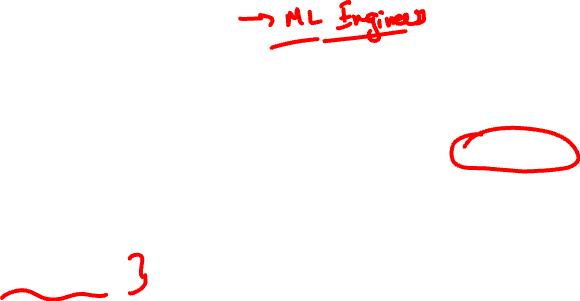 → ML Engineers
}